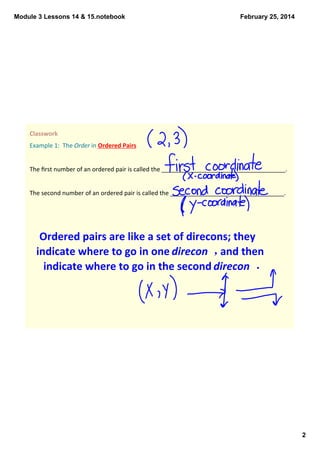 Module 3 Lessons 14 & 15.notebook February 25, 2014
Classwork
Example 1: The Order in Ordered Pairs (2,3)
The first number of an ordered pair is called the first coordinate.
(x-coordinate)
The second number of an ordered pair is called the second coordinate.
(y-coordinate)
Ordered pairs are like a set of direcons; they
indicate where to go in one direcon , and then
indicate where to go in the second direcon .
(x,y)
2